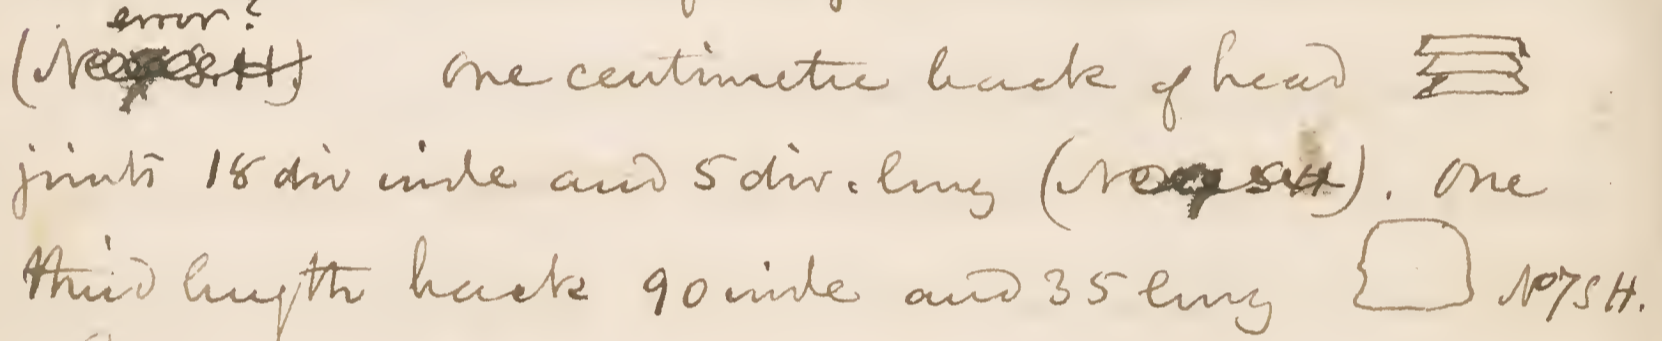 error?
( One centimetre back of head
joints 18 div wide and 5 div. long ( ). One
third length back 90 wide and 35 long No 7 S H.